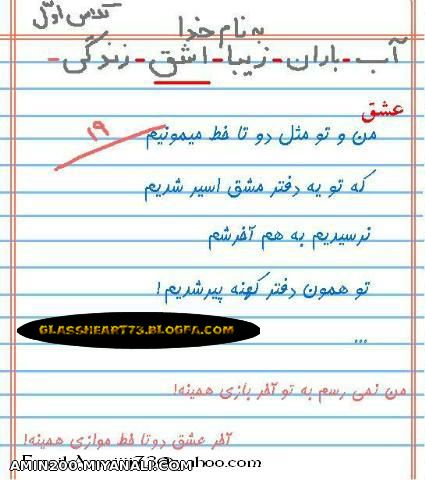 کلاس اول
به نام خدا
آب - باران - زیبا - اشق - زندگی -
عشق
۱۹
من و تو مثل دو تا خط میمونیم
که تو یه دفتر مشق اسیر شدیم
نرسیدیم به هم آخرشم
تو همون دفتر کهنه پیر شدیم!
GLASSHEART73.BLOGFA.COM
...
من نمی رسم به تو آخر بازی همینه!
آخر عشق دو تا خط موازی همینه!
AMIN200.MIYANALI.COM